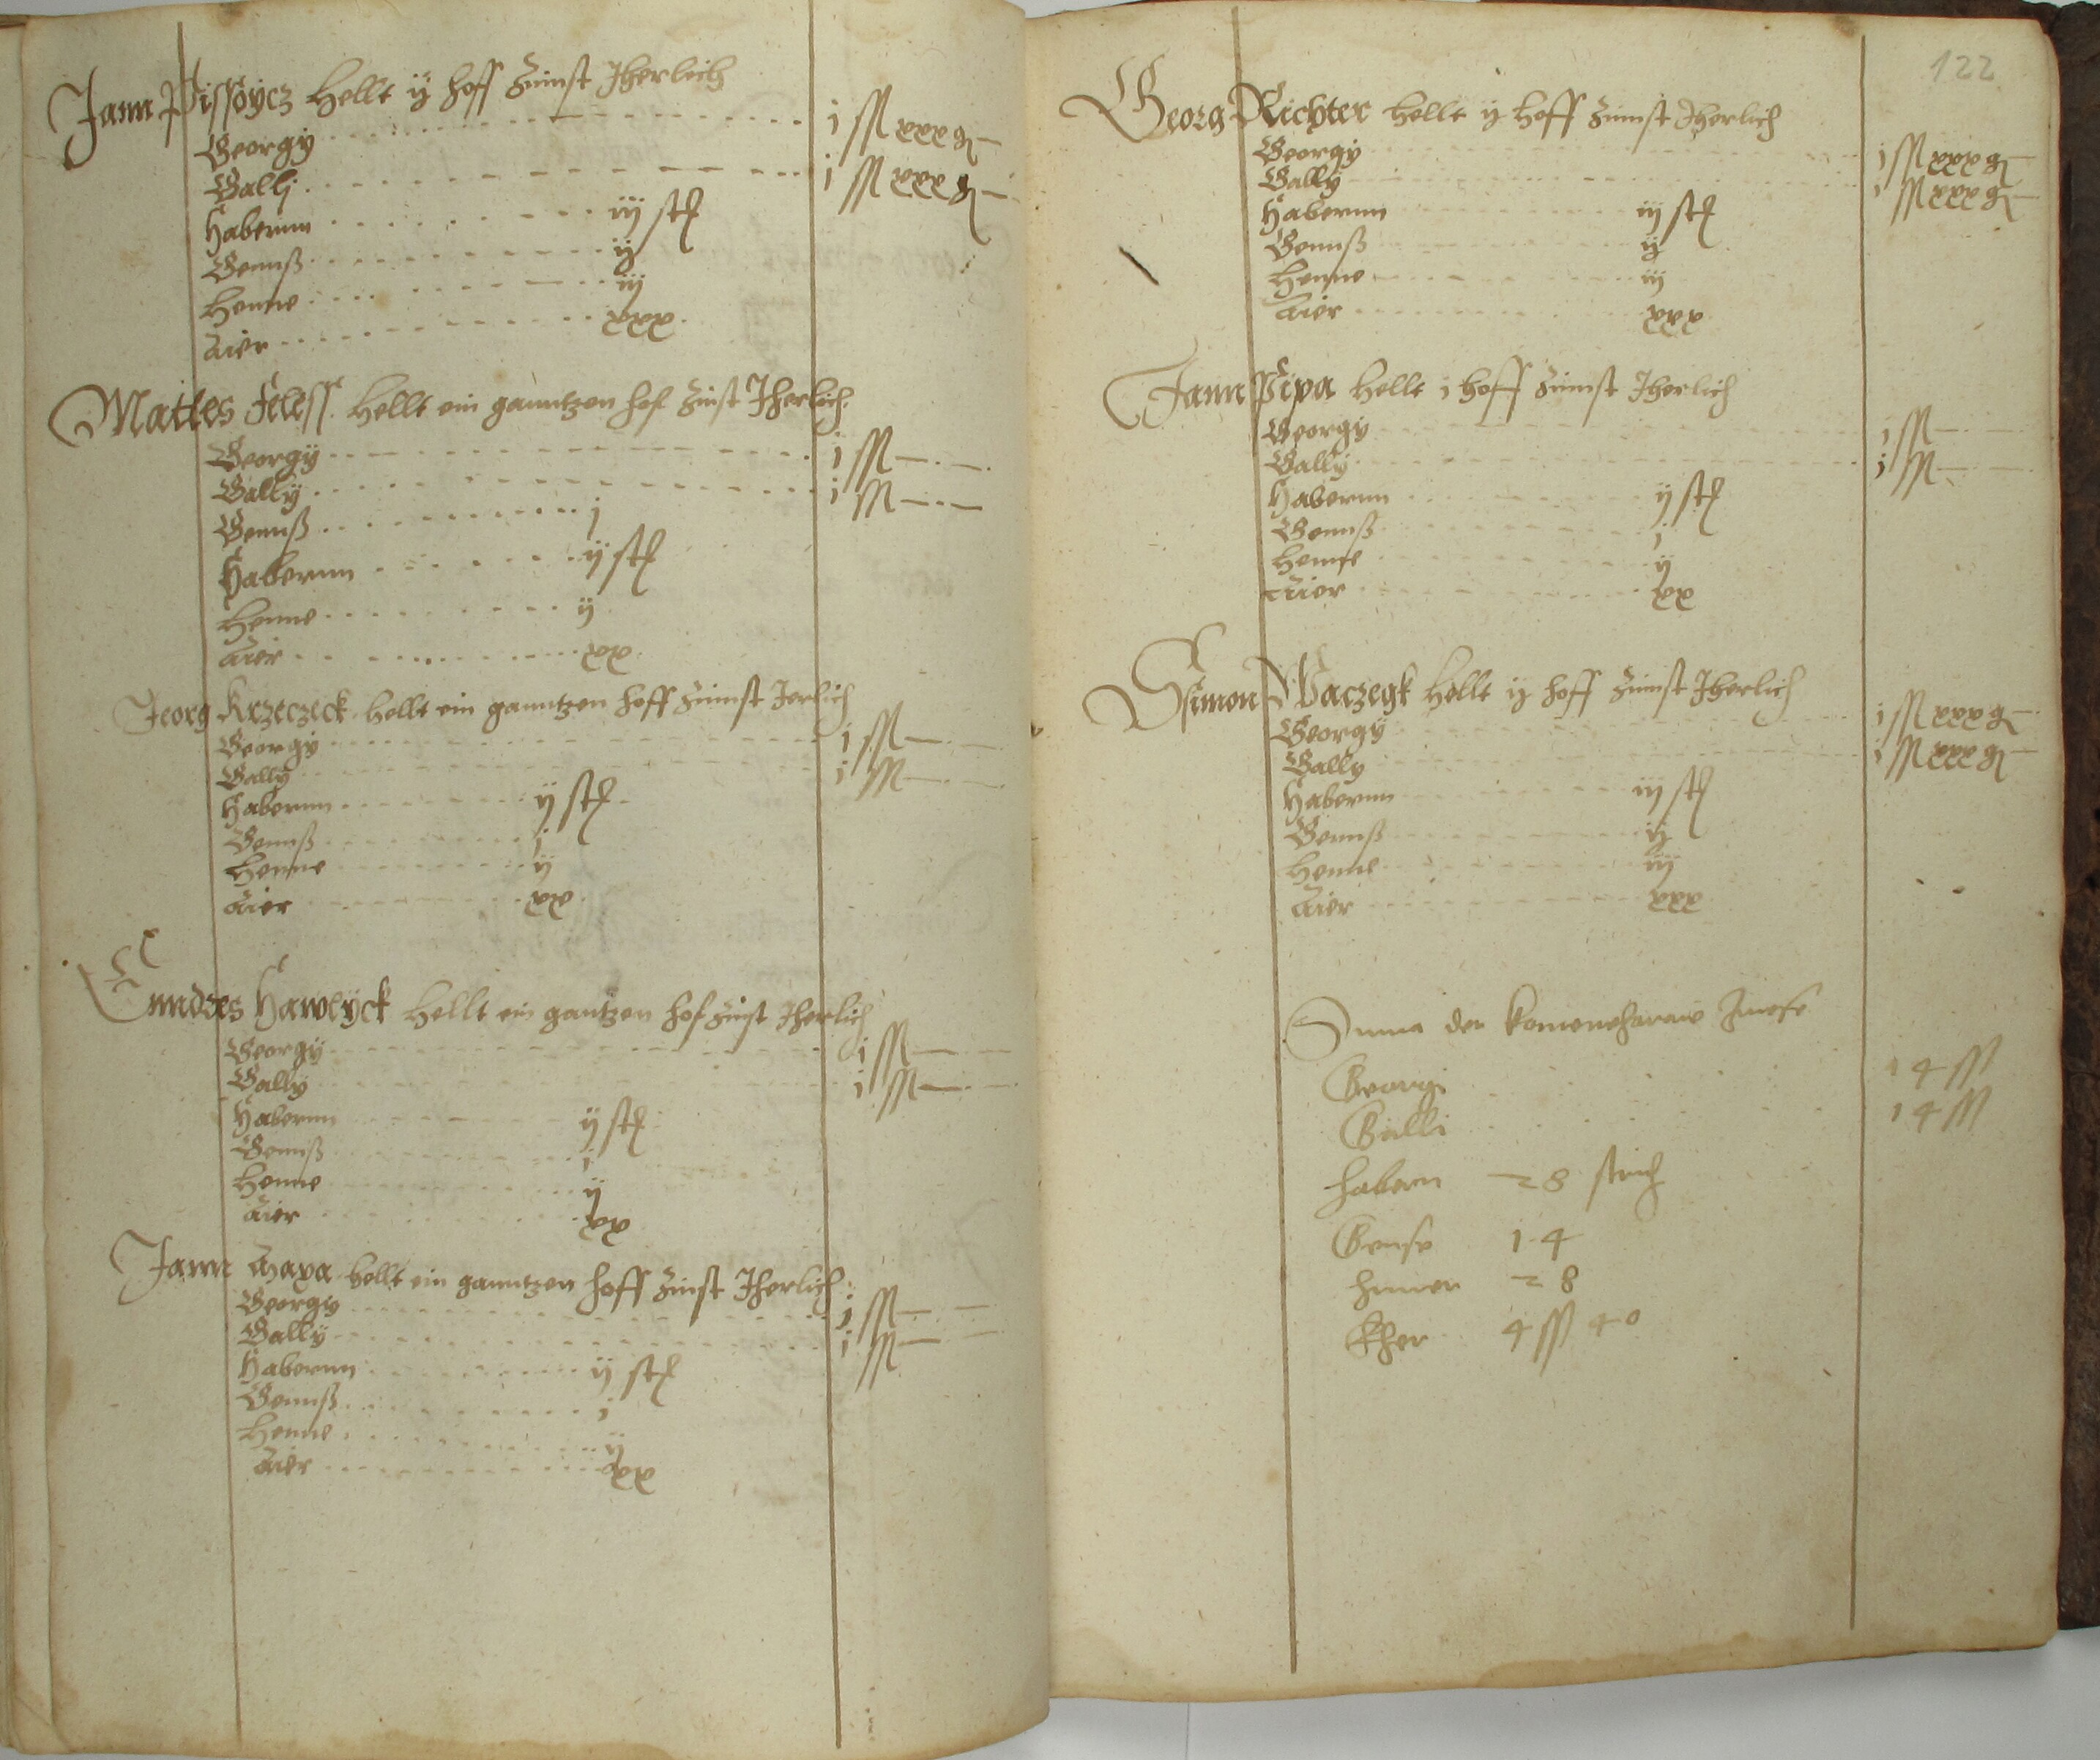 Jann Pissoycz hellt ij hoff Zinnst Jherlich
Georgy i ßß xxx g
Gallj i ßß xxx g
Habernn iij st
Gennß ij
Henne iij
Aier xxx
Mattes Jeless hellt ein ganntzen hof Zinst Jherlich
Georgy i ßß
Gally i ßß
Gennß j
Habernn ij st
Henne ij
Aier xx
Jeorg Krzeczeck hellt ein ganntzen hoff Zinnst Jerlich
Georgy i ßß
Gally i ßß
Habernn ij st
Gennß j
Henne ij
Aier xx
Enndres Hawlyck hellt ein gantzen hof Zinst Jherlich
Georgy i ßß
Gally i ßß
Habernn ij st
Gennß i
Henne ij
Aier xx
Jann Maxa hellt ein ganntzen hoff Zinst Jherlich
Georgy i ßß
Gally i ßß
Habernn ij st
Gennß i
Henne ij
Aier xx
122
Georg Richter hellt ij hoff Zinnst Jherlich
Georgy i ßß xxx g
Gally i ßß xxx g
Habernn iij st
Gennß ij
Henne iij
Aier xxx
Jann Pipa hellt i hoff Zinnst Jherlich
Georgy i ßß
Gally i ßß
Habernn ij st
Gennß j
Henne ij
Aier xx
Simon Waczegk hellt ij hoff Zinnst Jherlich
Georgy i ßß xxx g
Gally i ßß xxx g
Habernn iij st
Gennß ij
Henne iij
Aier xxx
Suma der
Georgi 14 ßß
Galli 14 ßß
habern 28 strich
Gense 14
hener 28
4 ßß 40